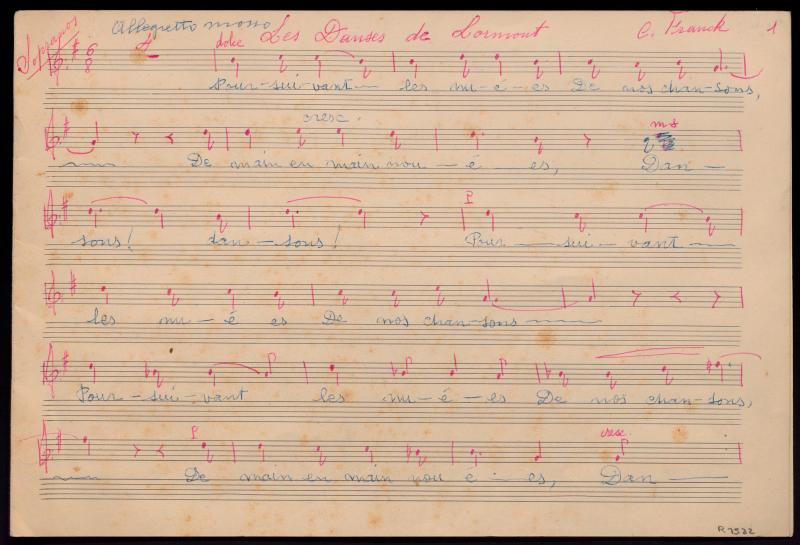 Sopranos
Allegretto mosso
Les Danses de Lormont
C. Franck
1
6
8
dolce
Pour-sui-vant les nu-é-es De nos chan-sons,
cresc.
mf
De main en main nou-é-es, Dan-
P
sons! dan-sons! Pour-sui-vant
les nu-é es De nos chan-sons
Pour-sui-vant les nu-é-es De nos chan-sons,
P
cresc.
De main en main nou é-es, Dan-
R 7522